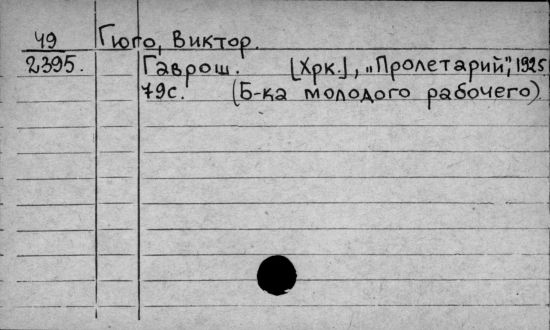 49 Гюго, Виктор.
2395. Гаврош. [Хрк.], „Пролетарий", 1925
79с. (Б-ка молодого рабочего).